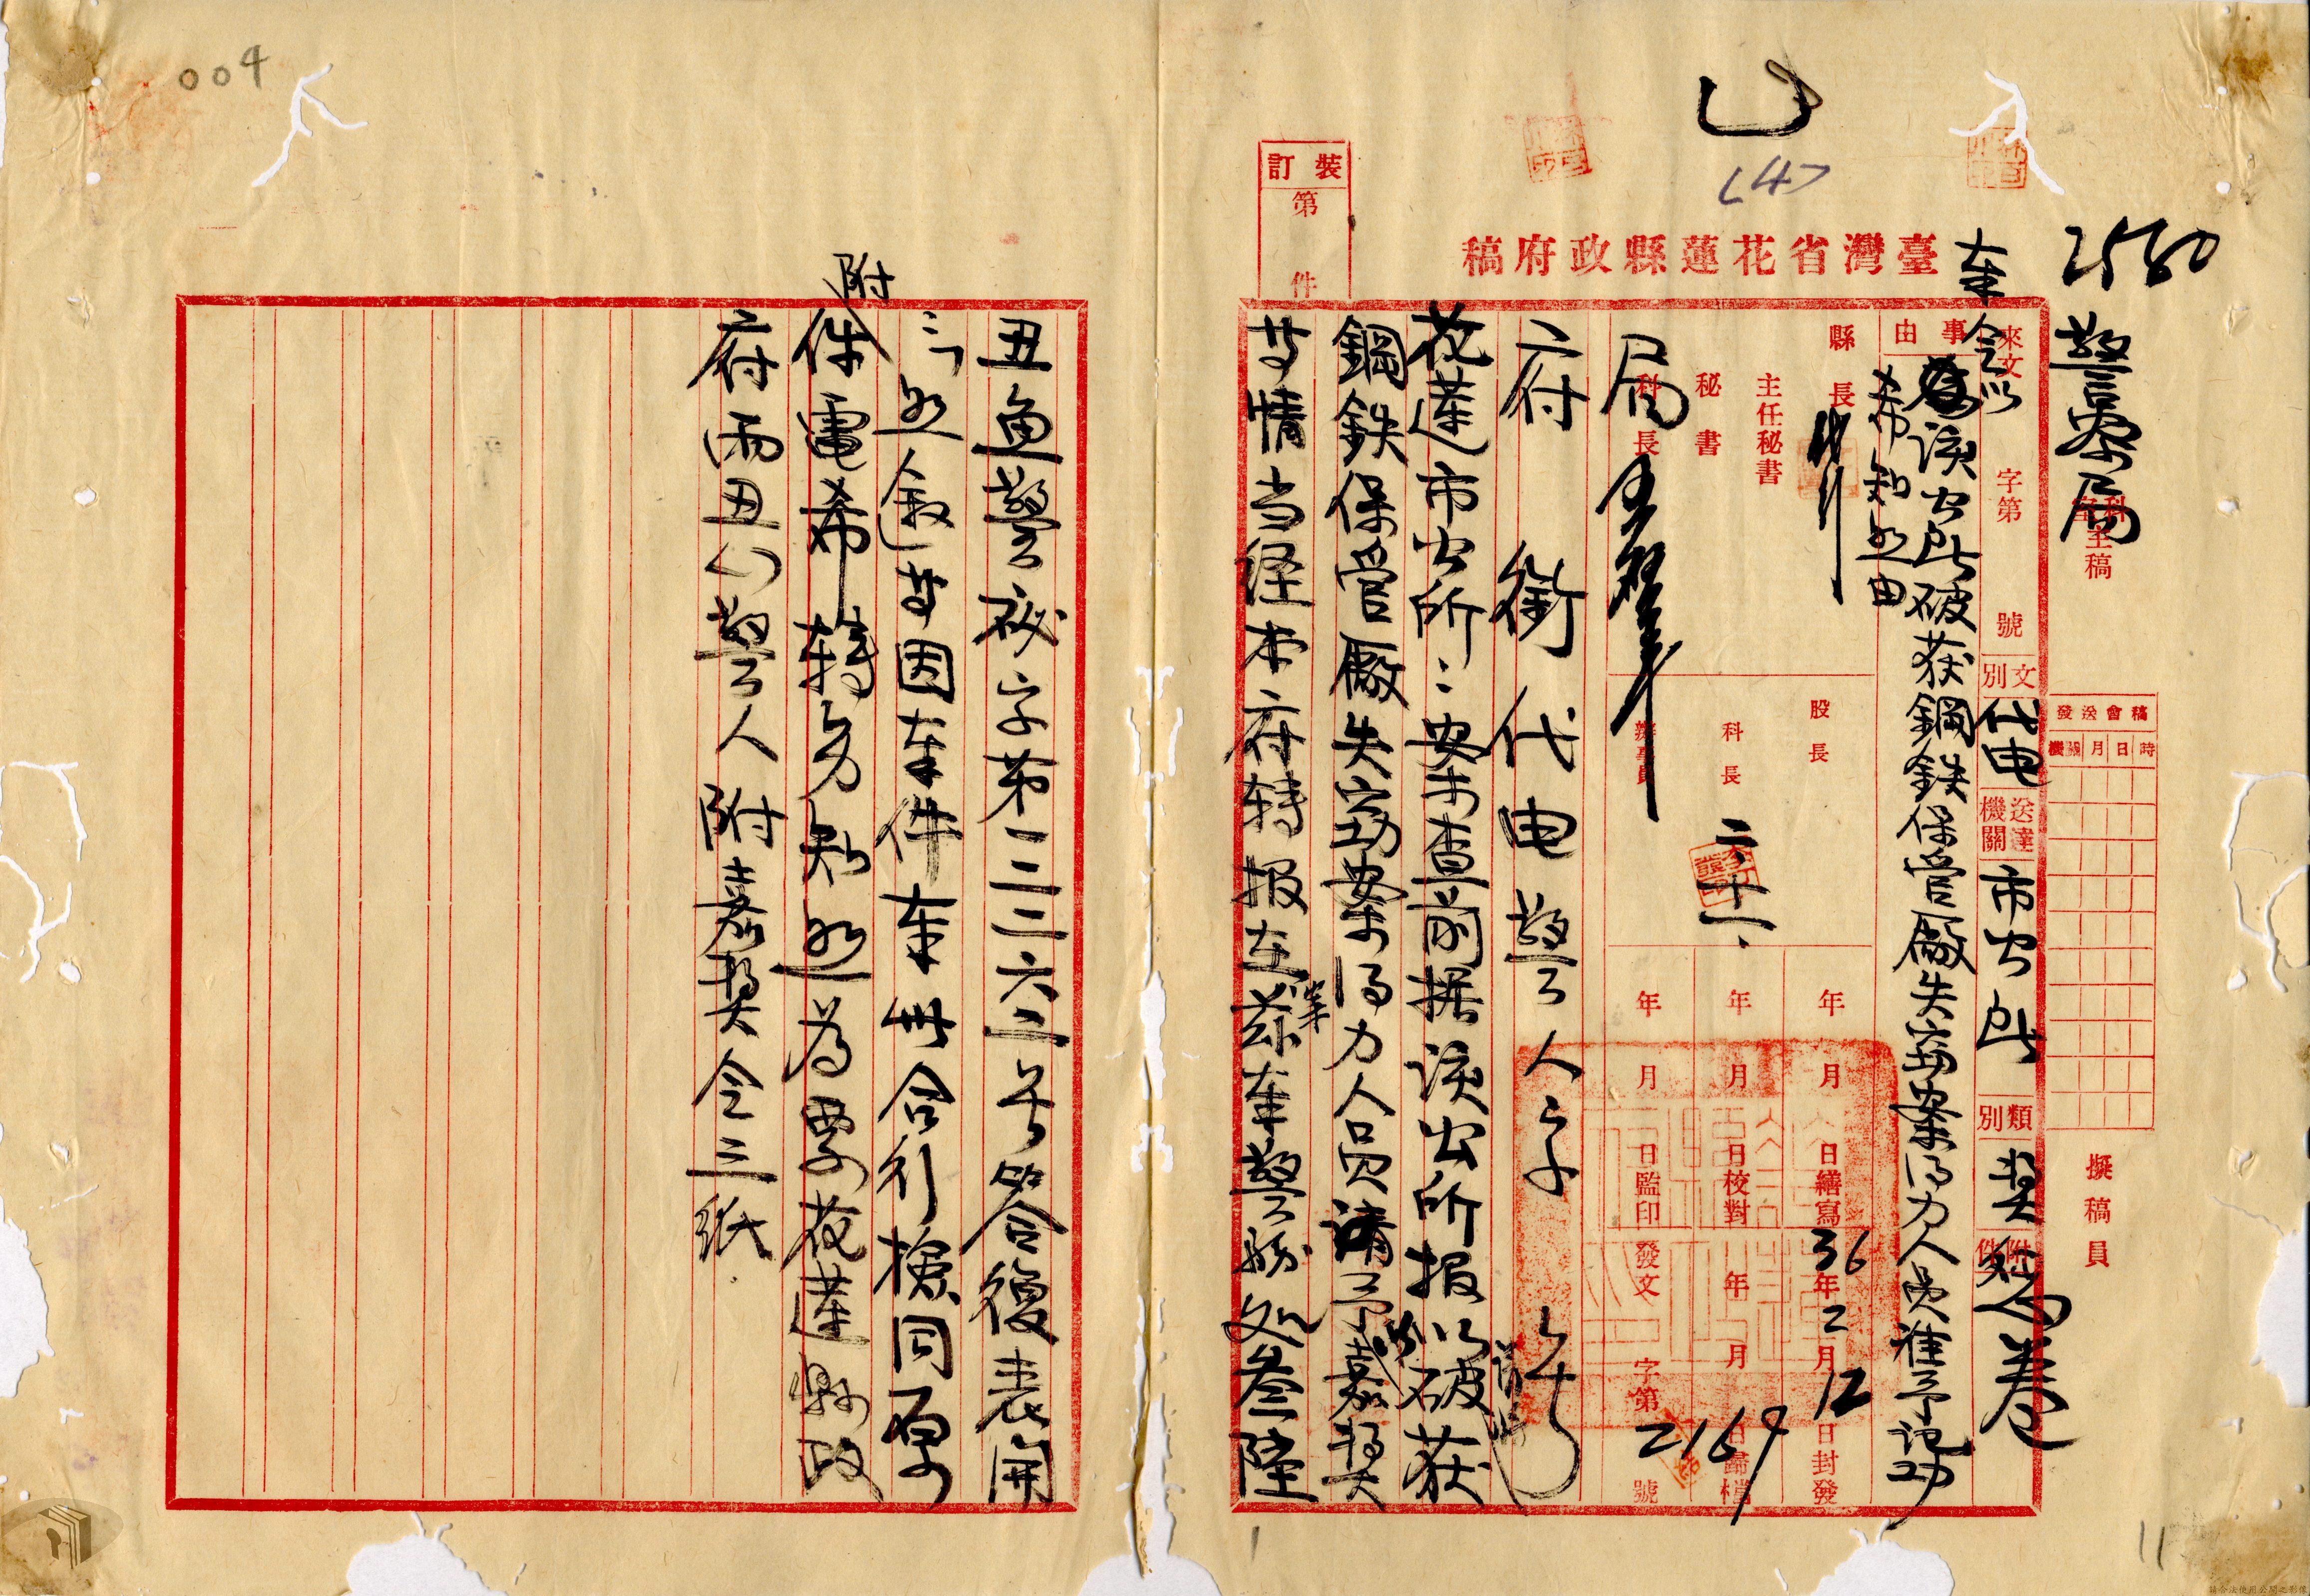 004
乙
(4)
2580
警察局
科室主稿
撰稿員
稿會送發
時日月機關
臺灣省花蓮縣政府稿
裝訂
第 件
來文 字第 號
文別 代电
送達機關 市公所
類別 奨懲
附件
卷
事由
奉令以該公所破获鋼鉄保管廠失窃案得力人員准予記功
希知照由
縣長
主任秘書
秘書
科長
局
股長
科長
辦事員
二、十一、
年 月 日繕寫
年 月 日校對
年 月 日監印
36年2月12日封發
年 月 日歸檔
發文 字第2169號
府銜代电警人字 号
花蓮市公所：案查前据該公所报以破获
鋼鉄保管廠失窃案得力人員請予嘉奨
等情当経本府转报在案
茲奉警務処叁陸
丑魚警秘字第一三三六二号答復表開
：「照敘」等因奉件奉此合行檢同原
附件電希转飭知照為要花蓮縣政
府丙丑（）警人附嘉奨令三紙
1
11